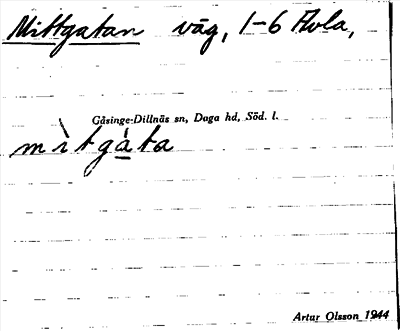 Mittgatan väg, 1-6 Avla,
Gåsinge-Dillnäs sn, Daga hd, Söd. l.
mìtgáta
Artur Olsson 1944